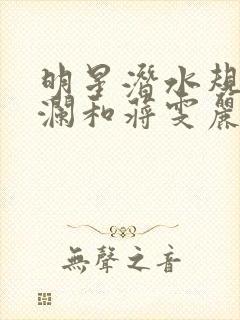 明星潛水規
瀾和蔣雯麗
無聲之音